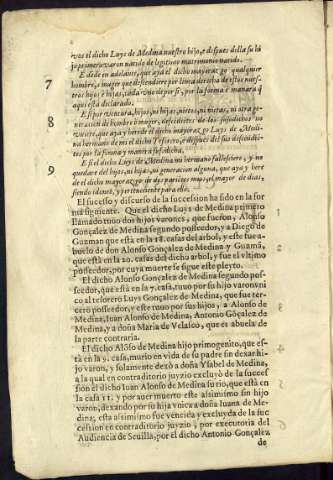 uos el dicho Luys de Medina nuestro hijo, e despues della su hi
jo primero varon nacido de legitimo matrimonio nacido.
7 E dende en adelante, que aya el dicho mayorazgo qualquier
hombre, o muger que descendiere por linea derecha de estos nues-
tros hijos e hijas, cada vno de por si, por la forma e manera q̃
aqui està declarado.
8 E si por ventura, hijos, ni hijas, nietos, ni nietas, ni otra ge
neracion de hombre o muger, decendietes de los susodichos no
vuiere, que aya y herede el dicho mayorazgo Luys de Medi-
na hermano de mi el dicho Tesorero, e despues del sus decendiẽ
tes por la forma y manera susodicha.
9 E si el dicho Luys de Medina mi hermano falleciere, y no
quedare del hijos, ni hijas, ni generacion alguna, que aya y here
de el dicho mayorazgo de dos parientes mios, el mayor de dias,
siendo idoneo, y perteneciente para ello.
El sucesso y discurso de la succession ha sido en la for
ma siguiente. Que el dicho Luys de Medina primero 1
llamado tuuo dos hijos varones, que fueron, Alonso
Gonçalez de Medina segundo posseedor, y a Diego de
Guzman que està en la 18. casa del arbol, y este fue a- 2
buelo de don Alonso Gonçalez de Medina y Guzmã,
que està en la 20. casa del dicho arbol, y fue el vltimo
posseedor, por cuya muerte se sigue este pleyto.
El dicho Alonso Gonçalez de Medina segundo pos-
seedor, que està en la 7. casa, tuuo por su hijo varon vni 3
co al tesorero Luys Gonçalez de Medina, que fue ter-
cero posseedor, y este tuuo por sus hijos, a Alonso de
Medina, Iuan Alonso de Medina, Antonio Gõçalez de
Medina, y a doña Maria de Velasco, que es abuela de
la parte contraria. 4
El dicho Alõso de Medina hijo primogenito, que es-
tà en la 9. casa, murio en vida de su padre sin dexar hi-
jo varon, y solamente dexò a doña Ysabel de Medina,
a la qual en contraditorio juyzio excluyò de la succes-
sion el dicho Iuan Alonso de Medina su tio, que està en 5
la casa 11. y por auer muerto este assimismo sin hijo
varon, dexando por su hija vnica a doña Iuana de Me-
dina, esta assimismo fue vencida y excluyda de la suc
cession en contraditorio juyzio, por executoria del
Audiencia de Seuilla, por el dicho Antonio Gonçalez
de